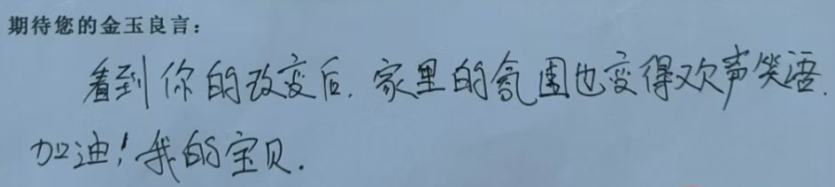 期待您的金玉良言：
看到你的改变后.家里的氛围也变得欢声笑语.
加油！我的宝贝.